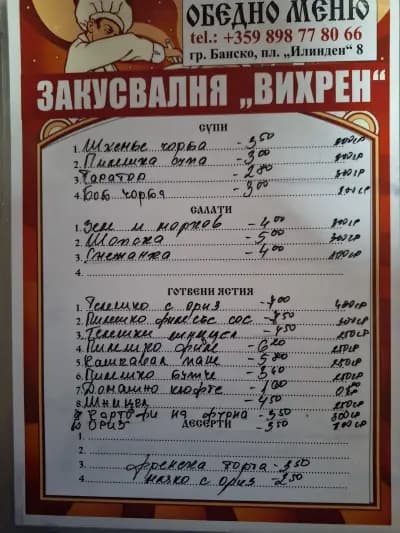 ОБЕДНО МЕНЮ
tel.: +359 898 77 80 66
гр. Банско, пл. „Илинден“ 8
ЗАКУСВАЛНЯ „ВИХРЕН“
СУПИ
1. Шкембе чорба - 3,50 300гр
2. Пилешка супа - 3,00 300гр
3. Таратор - 2,80 300гр
4. Боб чорба - 3,00 300гр
САЛАТИ
1. Зеле и моркови - 4,00 300гр
2. Шопска - 5,00 300гр
3. Снежанка - 4,00
4.
ГОТВЕНИ ЯСТИЯ
1. Телешко с ориз - 7,00 400гр
2. Пилешко филе със сос 300гр
3. Телешки 250гр
4. Пилешко филе 250гр
5. Кашкавал пане - 5,80 250гр
6. Пилешко бутче 250гр
7. Домашно кюфте
8. Шницел - 4,50 250гр
9. Картофи на фурна - 3,50 300гр
10. Ориз - 3,50 300гр
ДЕСЕРТИ
1.
2.
3. Френска торта - 3,50
4. Мляко с ориз - 2,50